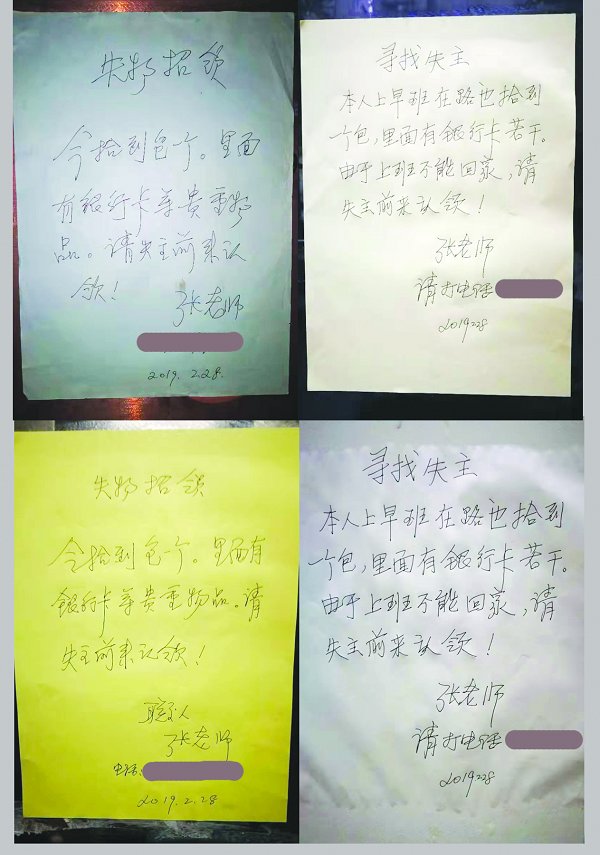 失物招领
今拾到包个。里面
有银行卡等贵重物
品。请失主前来认
领！
张老师
2019.2.28.
寻找失主
本人上早班在路也拾到
个包，里面有银行卡若干。
由于上班不能回家，请
失主前来认领！
张老师
请打电话
2019228
失物招领
今拾到包一个。里面有
银行卡等贵重物品。请
失主前来认领！
联系人
张老师
电话：
2019.2.28
寻找失主
本人上早班在路也拾到
个包，里面有银行卡若干。
由于上班不能回家，请
失主前来认领！
张老师
请打电话
2019228